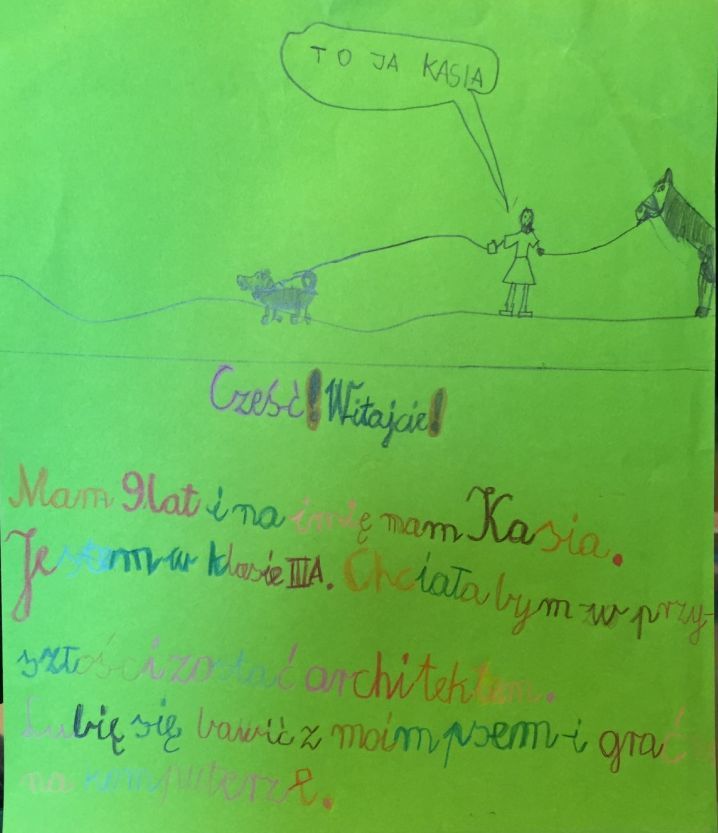 TO JA KASIA
Cześć! Witajcie!
Mam 9 lat i na imię mam Kasia.
Jestem w klasie IIIA. Chciała bym w przy-
szłości zostać architektem.
Lubię się bawić z moim psem i grać
na komputerze.